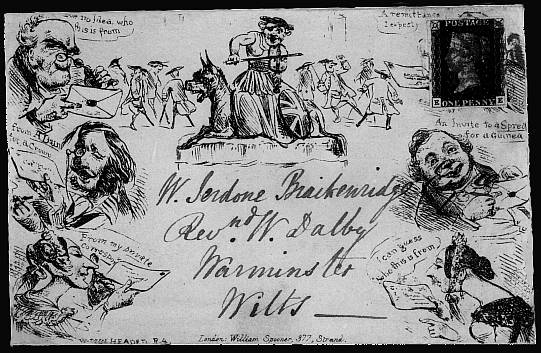 no Idea, who
this is from
A remittance
I expect
POSTAGE
E E
ONE PENNY
From A Dun
or a Crown
An Invite to a Spred
for a Guinea
W. Jerdone Braikenridge
Revnd W. Dalby
Warminster
Wilts
From my private
I can guess
who this is from
R.A.
London: William Spooner, 377, Strand.